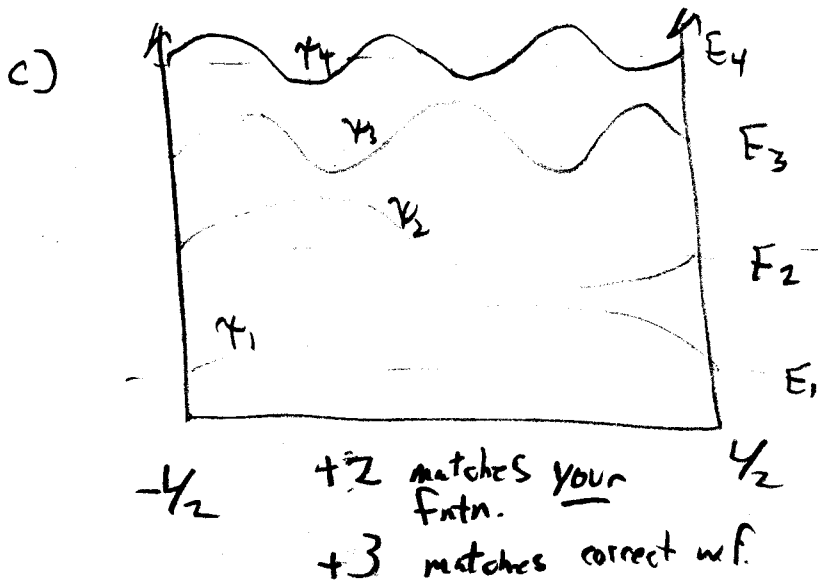 c)
ψ₄ E₄
ψ₃ E₃
ψ₂
E₂
ψ₁
E₁
-L/2 L/2
+2 matches your
fntn.
+3 matches correct w.f.